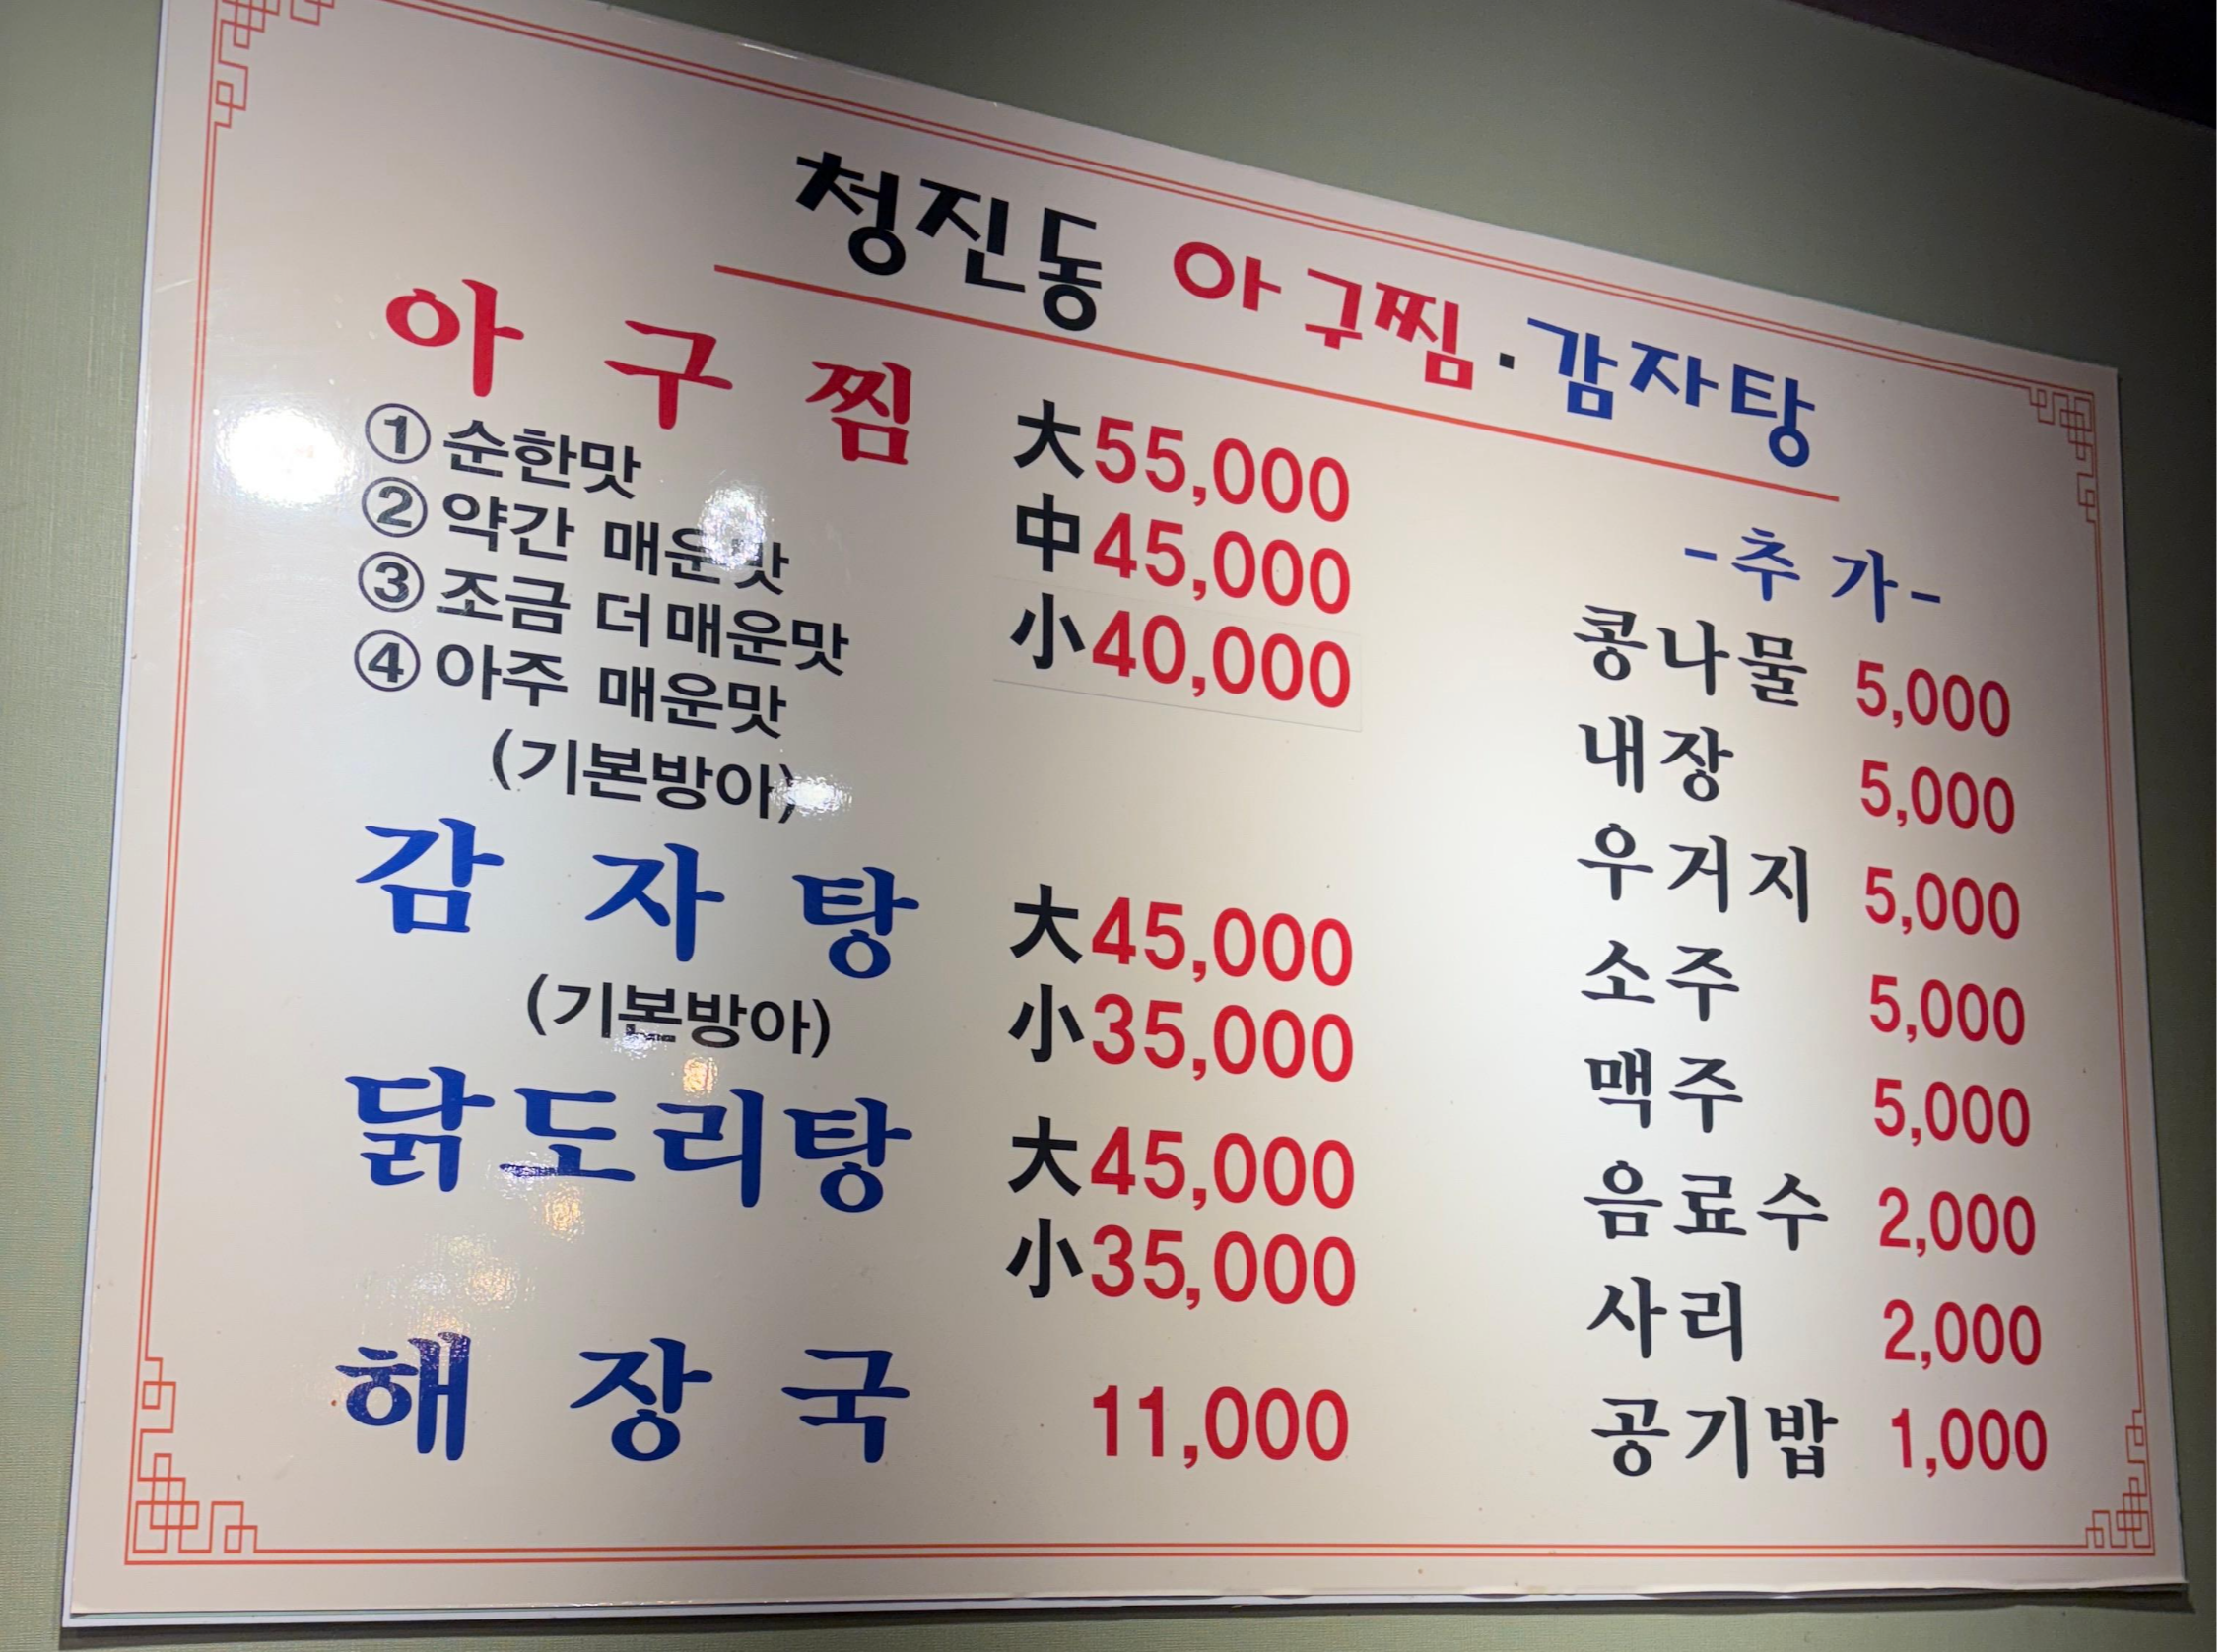 청진동 아구찜·감자탕
아구찜
大 55,000
中 45,000
小 40,000
① 순한맛
② 약간 매운맛
③ 조금 더 매운맛
④ 아주 매운맛
(기본방아)
감자탕
大 45,000
小 35,000
(기본방아)
닭도리탕
大 45,000
小 35,000
해장국 11,000
-추가-
콩나물 5,000
내장 5,000
우거지 5,000
소주 5,000
맥주 5,000
음료수 2,000
사리 2,000
공기밥 1,000